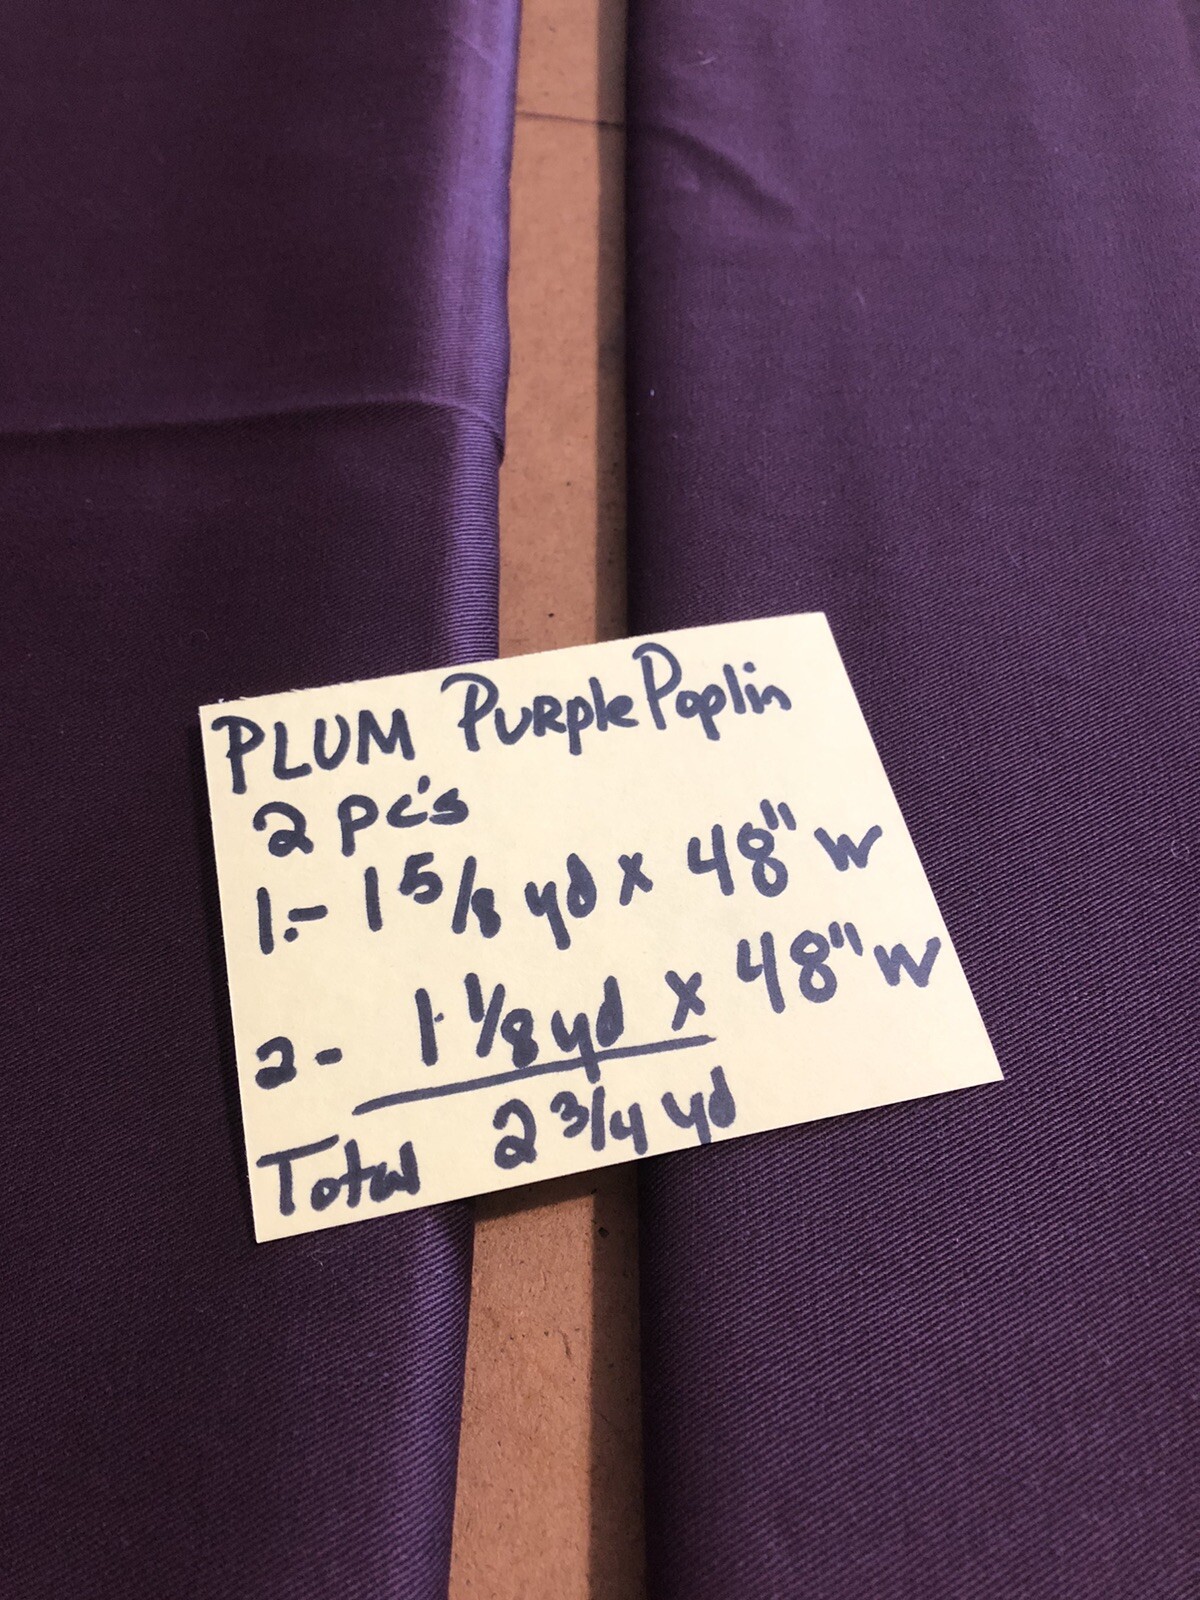 PLUM Purple Poplin
2 pc's
1.- 1 5/8 yd x 48" W
2- 1 1/8 yd x 48" W
Total 2 3/4 yd